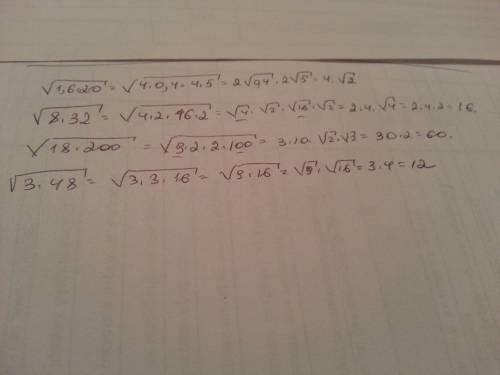 √1,6·20 = √4·0,4·4·5 = 2√0,4 · 2√5 = 4·√2
√8·32 = √4·2·16·2 = √4 · √2 · √16 · √2 = 2·4·√4 = 2·4·2 = 16.
√18·200 = √9·2·2·100 = 3·10·√2·√2 = 30·2 = 60.
√3·48 = √3·3·16 = √9·16 = √9 · √16 = 3·4 = 12